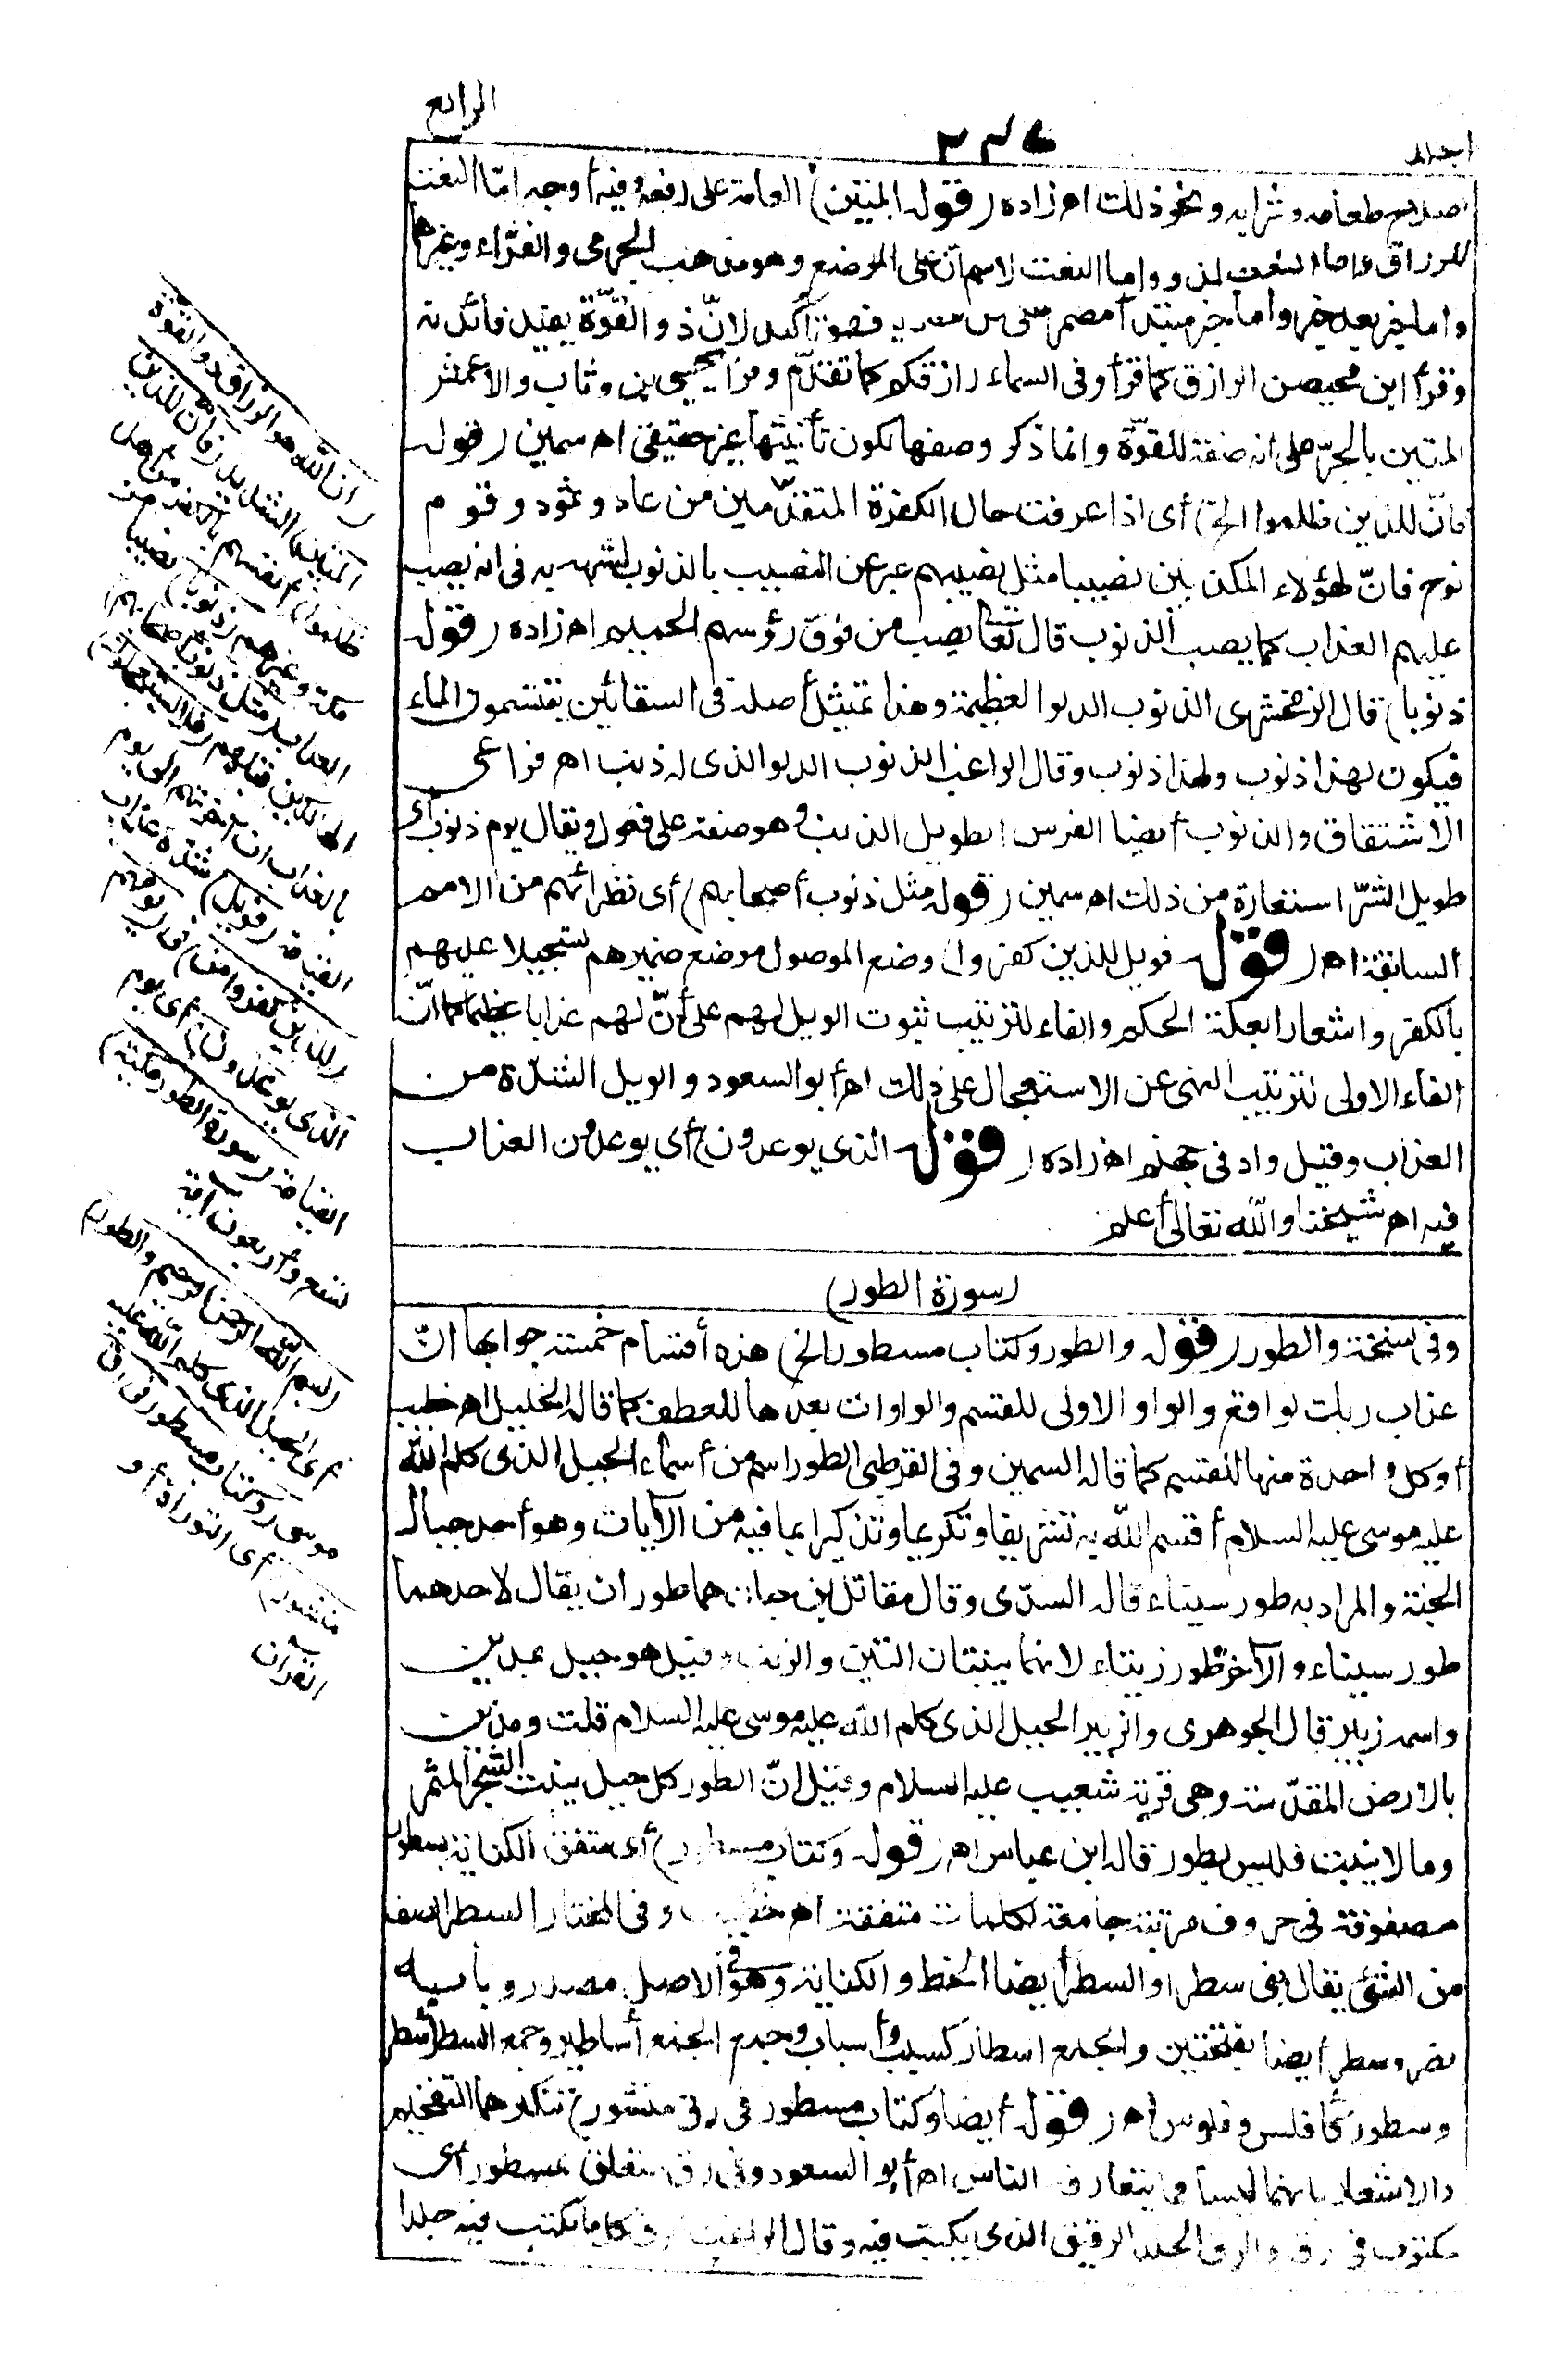 الرابع
الجلد
اصلاح طعامه وشرابه ونحو ذلك اه زاده (قوله المتين) العامة على رفعه وفيه أوجه امّا النعت
للرزاق واما النعت لذو واما النعت لاسم انّ على الموضع وهو مذهب الجرمى والفرّاء وغيرهما
واما خبر بعد خبر واما خبر مبتدأ مضمر وعلى كل تقدير فهو تأكيد لانّ ذو القوّة يفيد فائدته
وقرأ ابن محيصن الرازق كما قرأ وفى السماء رازقكم كما تقدّم وقرأ يحيى بن وثاب والأعمش
المتين بالجرّ على انه صفة للقوّة وانما ذكر وصفها لكون تأنيثها غير حقيقى اه سمين (قوله
فانّ للذين ظلموا الخ) أى اذا عرفت حال الكفرة المتقدّمين من عاد وثمود وقوم
نوح فانّ لهؤلاء المكذبين نصيبا مثل نصيبهم عبر عن النصيب بالذنوب لشبهه به فى انه يصب
عليهم العذاب كما يصب الذنوب قال تعالى يصب من فوق رؤسهم الحميم اه زاده (قوله
ذنوبا) قال الزمخشرى الذنوب الدلو العظيمة وهذا تمثيل أصله فى السقائين يقتسمون الماء
فيكون لهذا ذنوب ولهذا ذنوب وقال الراغب الذنوب الدلو الذى له ذنب اه فراعى
الاشتقاق والذنوب أيضا الفرس الطويل الذنب وهو صفة على فعول ويقال يوم ذنوب أى
طويل الشرّ استعارة من ذلك اه سمين (قوله مثل ذنوب أصحابهم) أى نظرائهم من الامم
السابقة اه (قوله فويل للذين كفروا) وضع الموصول موضع ضميرهم تسجيلا عليهم
بالكفر واشعارا بعلة الحكم والفاء لترتيب ثبوت الويل لهم على أنّ لهم عذابا عظيما كما انّ
الفاء الاولى لترتيب النهى عن الاستعجال على ذلك اه أبو السعود والويل الشدّة من
العذاب وقيل واد فى جهنم اه زاده (قوله الذى يوعدون) أى يوعدون العذاب
فيه اه شيخنا والله تعالى أعلم
(سورة الطور)
وفى نسخة والطور (قوله والطور وكتاب مسطور الخ) هذه أقسام خمسة جوابها انّ
عذاب ربك لواقع والواو الاولى للقسم والواوات بعدها للعطف كما قاله الخليل اه خطيب
أو كل واحدة منها للقسم كما قاله السمين وفى القرطبى الطور اسم من أسماء الجبل الذى كلم الله
عليه موسى عليه السلام أقسم الله به تشريفا وتكريما وتذكيرا بما فيه من الآيات وهو أحد جبال
الجنة والمراد به طور سيناء قاله السدّى وقال مقاتل بن حيان هما طوران يقال لاحدهما
طور سيناء والآخر طور زيتاء لانهما ينبتان التين والزيت وقيل هو جبل بمدين
واسمه زبير قال الجوهرى والزبير الجبل الذى كلم الله عليه موسى عليه السلام قلت ومدين
بالارض المقدّسة وهى قرية شعيب عليه السلام وقيل انّ الطور كل جبل ينبت الشجر المثمر
وما لا ينبت فليس بطور قاله ابن عباس اه (قوله وكتاب مسطور) أى متفق الكتابة بسطور
مصفوفة فى حروف مرتبة جامعة لكلمات متفقة اه خطيب وفى المختار السطر الصف
من الشئ يقال بنى سطرا والسطر أيضا الخط والكتابة وهو فى الاصل مصدر وبابه
نصر وسطر أيضا بفتحتين والجمع اسطار كسبب وأسباب وجمع الجمع أساطير وجمع السطر أسطر
وسطور كأفلس وفلوس اه (قوله أيضا وكتاب مسطور فى رق منشور) تنكيرهما للتفخيم
والاشعار بانهما ليسا مما يتعارف الناس اه أبو السعود وفى رق متعلق بمسطور أى
مكتوب فى رق والرق الجلد الرقيق الذى يكتب فيه وقال الراغب الرق كل ما يكتب فيه جلدا
(انّ الله هو الرزاق ذو القوّة
المتين) الشديد (فانّ للذين
ظلموا) أنفسهم بالكفر من أهل
مكة وغيرهم (ذنوبا) نصيبا من
العذاب (مثل ذنوب أصحابهم)
الهالكين قبلهم (فلا يستعجلون)
بالعذاب ان أخرتهم الى يوم
القيامة (فويل) شدّة عذاب
(للذين كفروا من) فى (يومهم
الذى يوعدون) أى يوم
القيامة (سورة الطور مكية)
تسع وأربعون آية
(بسم الله الرحمن الرحيم والطور)
أى الجبل الذى كلم الله عليه
موسى (وكتاب مسطور فى رق
منشور) أى التوراة أو
القرآن